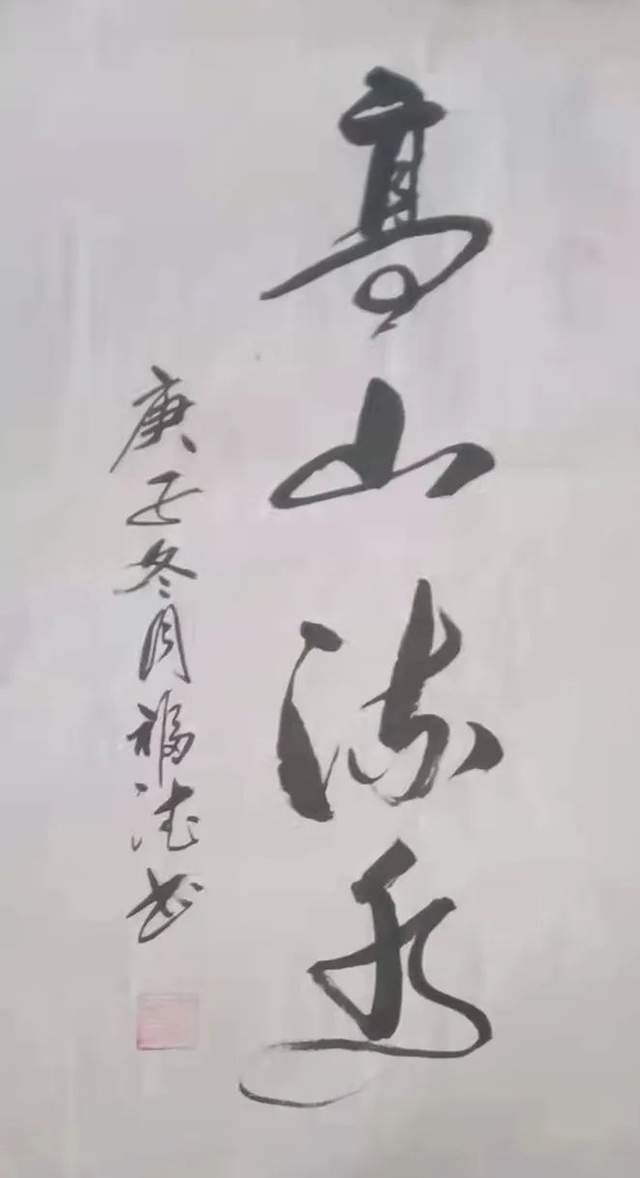 高山流水
庚子冬月福德书